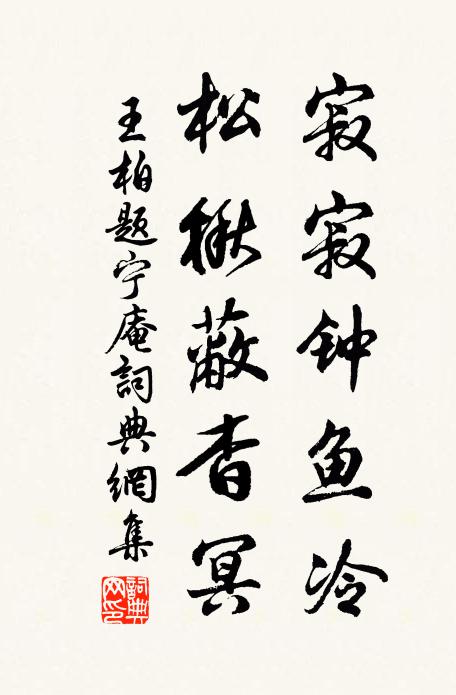 寂寂钟鱼冷
松楸蔽杳冥
王柏题宁庵詞典網集
詞典网印